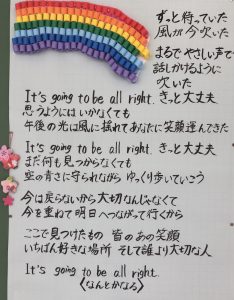 ずっと待っていた
風が今吹いた
まるでやさしい声で
話しかけるように
吹いた
It's going to be all right. きっと大丈夫
思うようにはいかなくても
午後の光は風に揺れてあなたに笑顔運んできた
It's going to be all right. きっと大丈夫
まだ何も見つからなくても
空の青さに守られながら ゆっくり歩いていこう
今は戻らないから大切なんじゃなくて
今を重ねて明日へつながって行くから
ここで見つけたもの 皆のあの笑顔
いちばん好きな場所 そして誰より大切な人
It's going to be all right.
〈なんとかなる〉